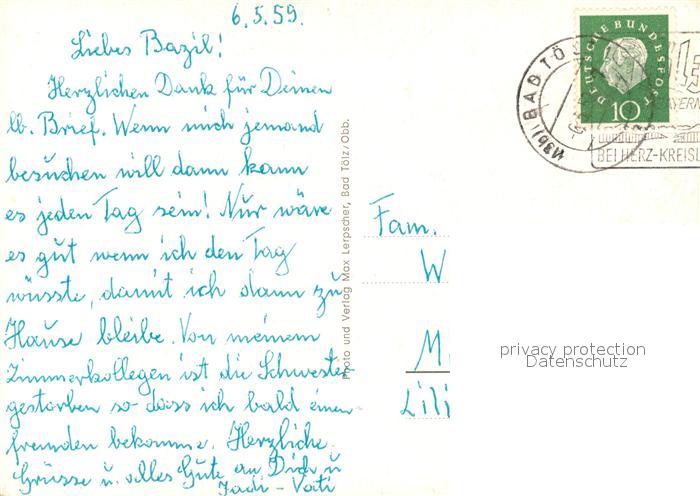 6.5.59.
Liebes Bazil!
Herzlichen Dank für Deinen
lb. Brief. Wenn mich jemand
besuchen will dann kann
es jeden Tag sein! Nur wäre
es gut wenn ich den Tag
wüsste, damit ich dann zu
Hause bleibe. Von meinem
Zimmerkollegen ist die Schwester
gestorben so dass ich bald einen
fremden bekomme. Herzliche
Grüsse u. alles Gute an Dich u
Jadi - Vati
Photo und Verlag Max Lerpscher, Bad Tölz/Obb.
Fam.
W
M
Lili
DEUTSCHE BUNDESPOST
10
(13b) BAD TÖ
BAYERN
BEI HERZ-KREISL
privacy protection
Datenschutz